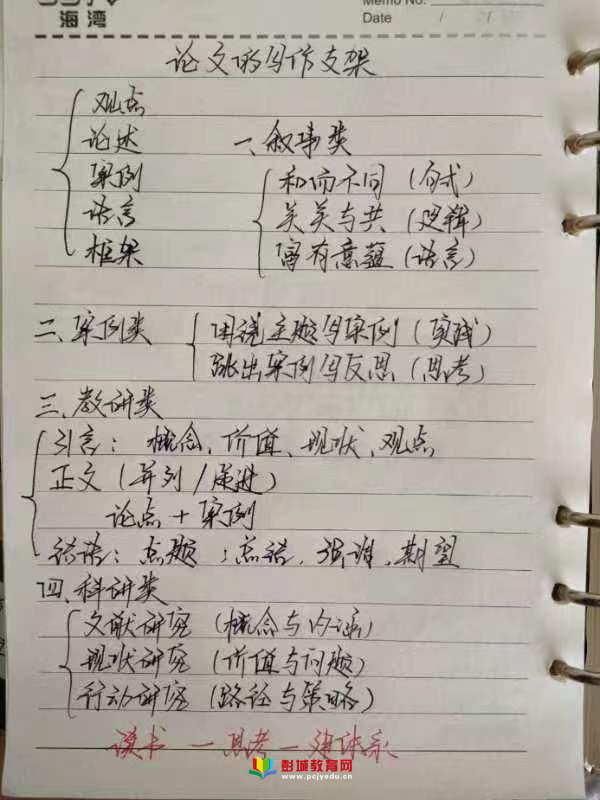 海湾
Memo No.
Date / /
论文的写作支架
观点
论述
案例
语言
框架
一、叙事类
和而不同（句式）
美美与共（逻辑）
富有意蕴（语言）
二、案例类
围绕主题写案例（实践）
跳出案例写反思（思考）
三、教研类
引言：概念、价值、现状、观点
正文（并列/递进）
论点+案例
结语：点题：总结、强调、期望
四、科研类
文献研究（概念与内涵）
现状研究（价值与问题）
行动研究（路径与策略）
读书—思考—建体系
彭城教育网
www.pcjyedu.cn